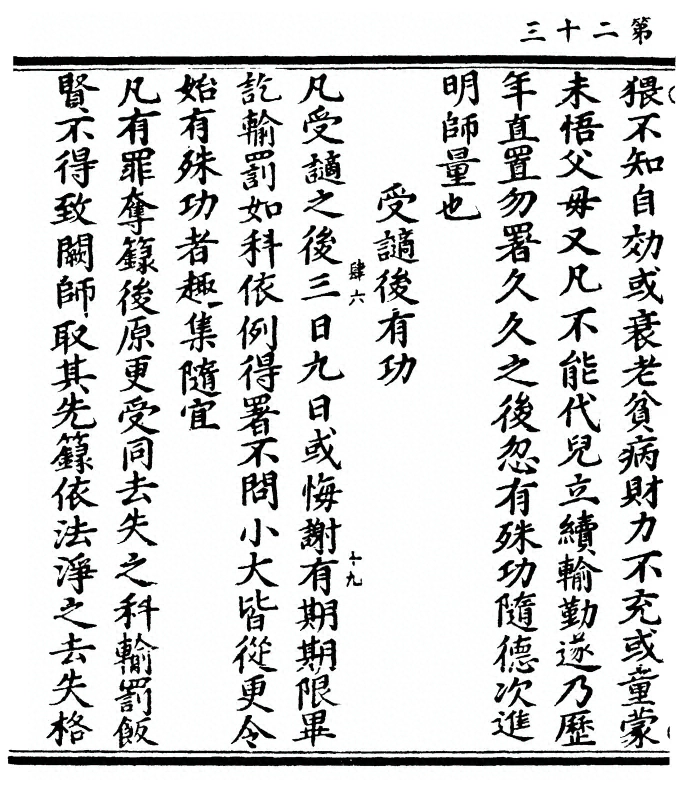 第二十三
猥不知自効或衰老貧病財力不充或童蒙
未悟父母又凡不能代兒立續輸勤遂乃歷
年直置勿署久久之後忽有殊功隨德次進
明師量也
受謫後有功
肆六
十九
凡受謫之後三日九日或悔謝有期期限畢
訖輸罰如科依例得署不問小大皆從更令
始有殊功者趣一集隨宜
凡有罪奪籙後原更受同去失之科輸罰飯
賢不得致闕師取其先籙依法淨之去失格